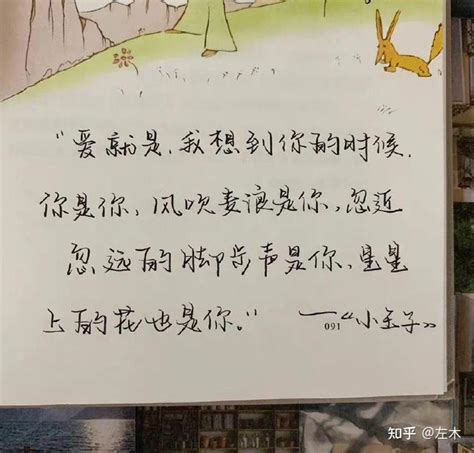 “爱就是，我想到你的时候，
你是你，风吹麦浪是你，忽近
忽远的脚步声是你，星星
上的花也是你。” ——《小王子》
091
知乎 @左木